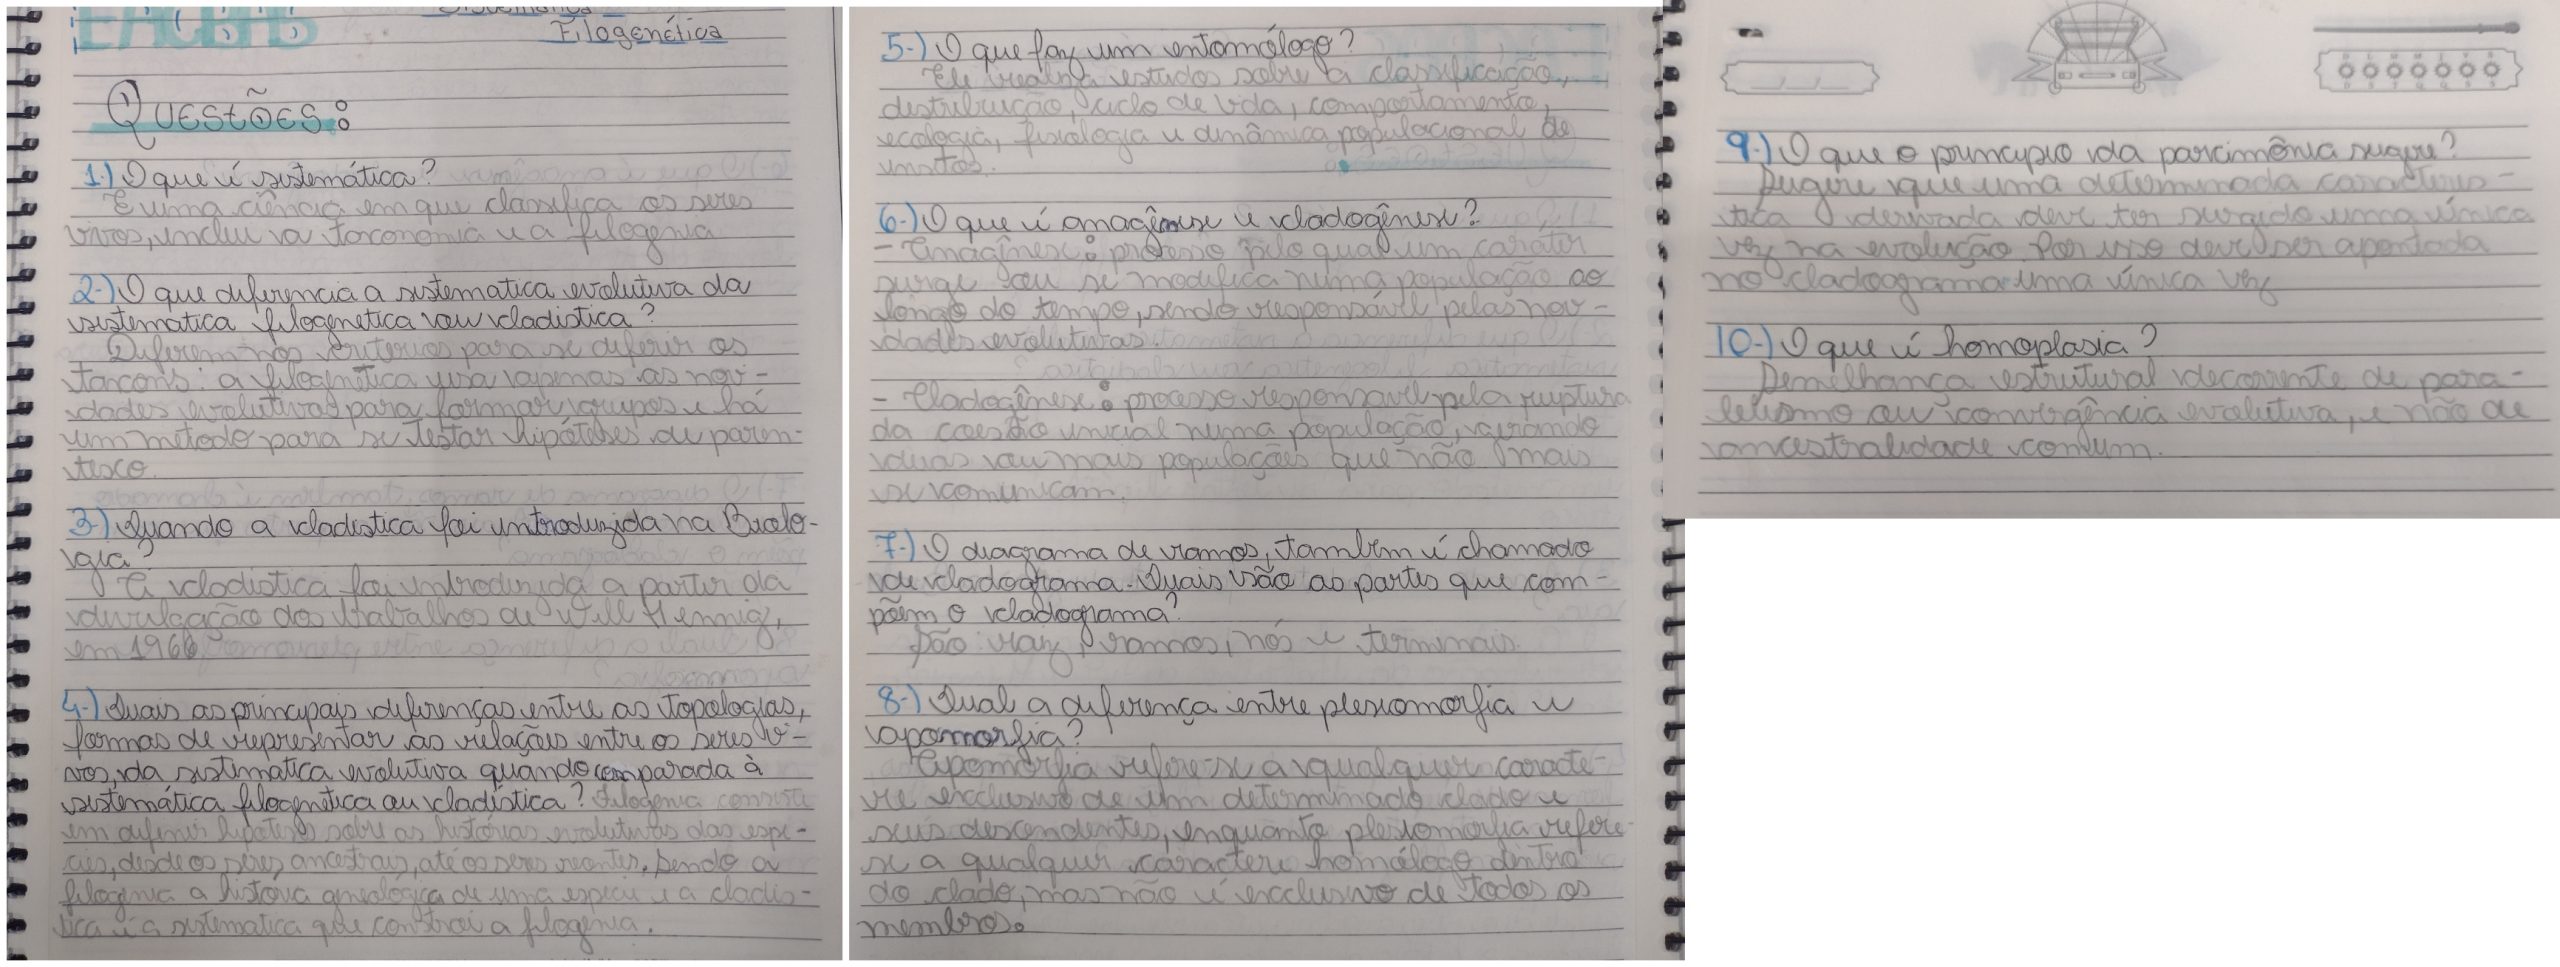 Filogenética
QUESTÕES:
1-) O que é sistemática?
É uma ciência em que classifica os seres
vivos, inclui a taxonomia e a filogenia
2-) O que diferencia a sistematica evolutiva da
sistematica filogenetica ou cladistica?
Diferem nos criterios para se diferir os
taxons: a filogenética usa apenas as nov-
idades evolutivas para formar grupos e há
um método para se testar hipóteses de paren-
tesco.
3-) Quando a cladistica foi introduzida na Biolo-
gia?
A cladistica foi introduzida a partir da
divulgação dos trabalhos de Will Hennig,
em 1966
4-) Quais as principais diferenças entre as topologias,
formas de representar as relações entre os seres vi-
vos, da sistematica evolutiva quando comparada à
sistemática filogenética ou cladística? Filogenia consiste
em definir hipóteses sobre as histórias evolutivas das espé-
cies, desde os seres ancestrais, até os seres recentes. Sendo a
filogenia a história genealógica de uma espécie e a cladis-
tica é a sistematica que constroi a filogenia.
5-) O que faz um entomólogo?
Ele realiza estudos sobre a classificação,
destribuição, ciclo de vida, comportamento,
ecologia, fisiologia e dinâmica populacional de
insetos.
6-) O que é anagênese e cladogênese?
- Anagênese: processo pelo qual um caráter
surge ou se modifica numa população ao
longo do tempo, sendo responsável pelas nov-
idades evolutivas.
- Cladogênese: processo responsavel pela ruptura
da coesão inicial numa população, gerando
duas ou mais populações que não mais
se comunicam.
7-) O diagrama de ramos, também é chamado
de cladograma. Quais são as partes que com-
põem o cladograma?
São: raiz, ramos, nós e terminais.
8-) Qual a diferença entre plesiomorfia e
apomorfia?
Apomorfia refere-se a qualquer caracte-
re exclusivo de um determinado clado e
seus descendentes, enquanto plesiomorfia refere-
se a qualquer caractere homólogo dentro
do clado, mas não é exclusivo de todos os
membros.
9-) O que o principio da parcimônia sugere?
Sugere que uma determinada caracteris-
tica derivada deve ter surgido uma única
vez na evolução. Por isso deve ser apontada
no cladograma uma única vez
10-) O que é homoplasia?
Semelhança estrutural decorrente de para-
lelismo ou convergência evolutiva, e não de
ancestralidade comum.